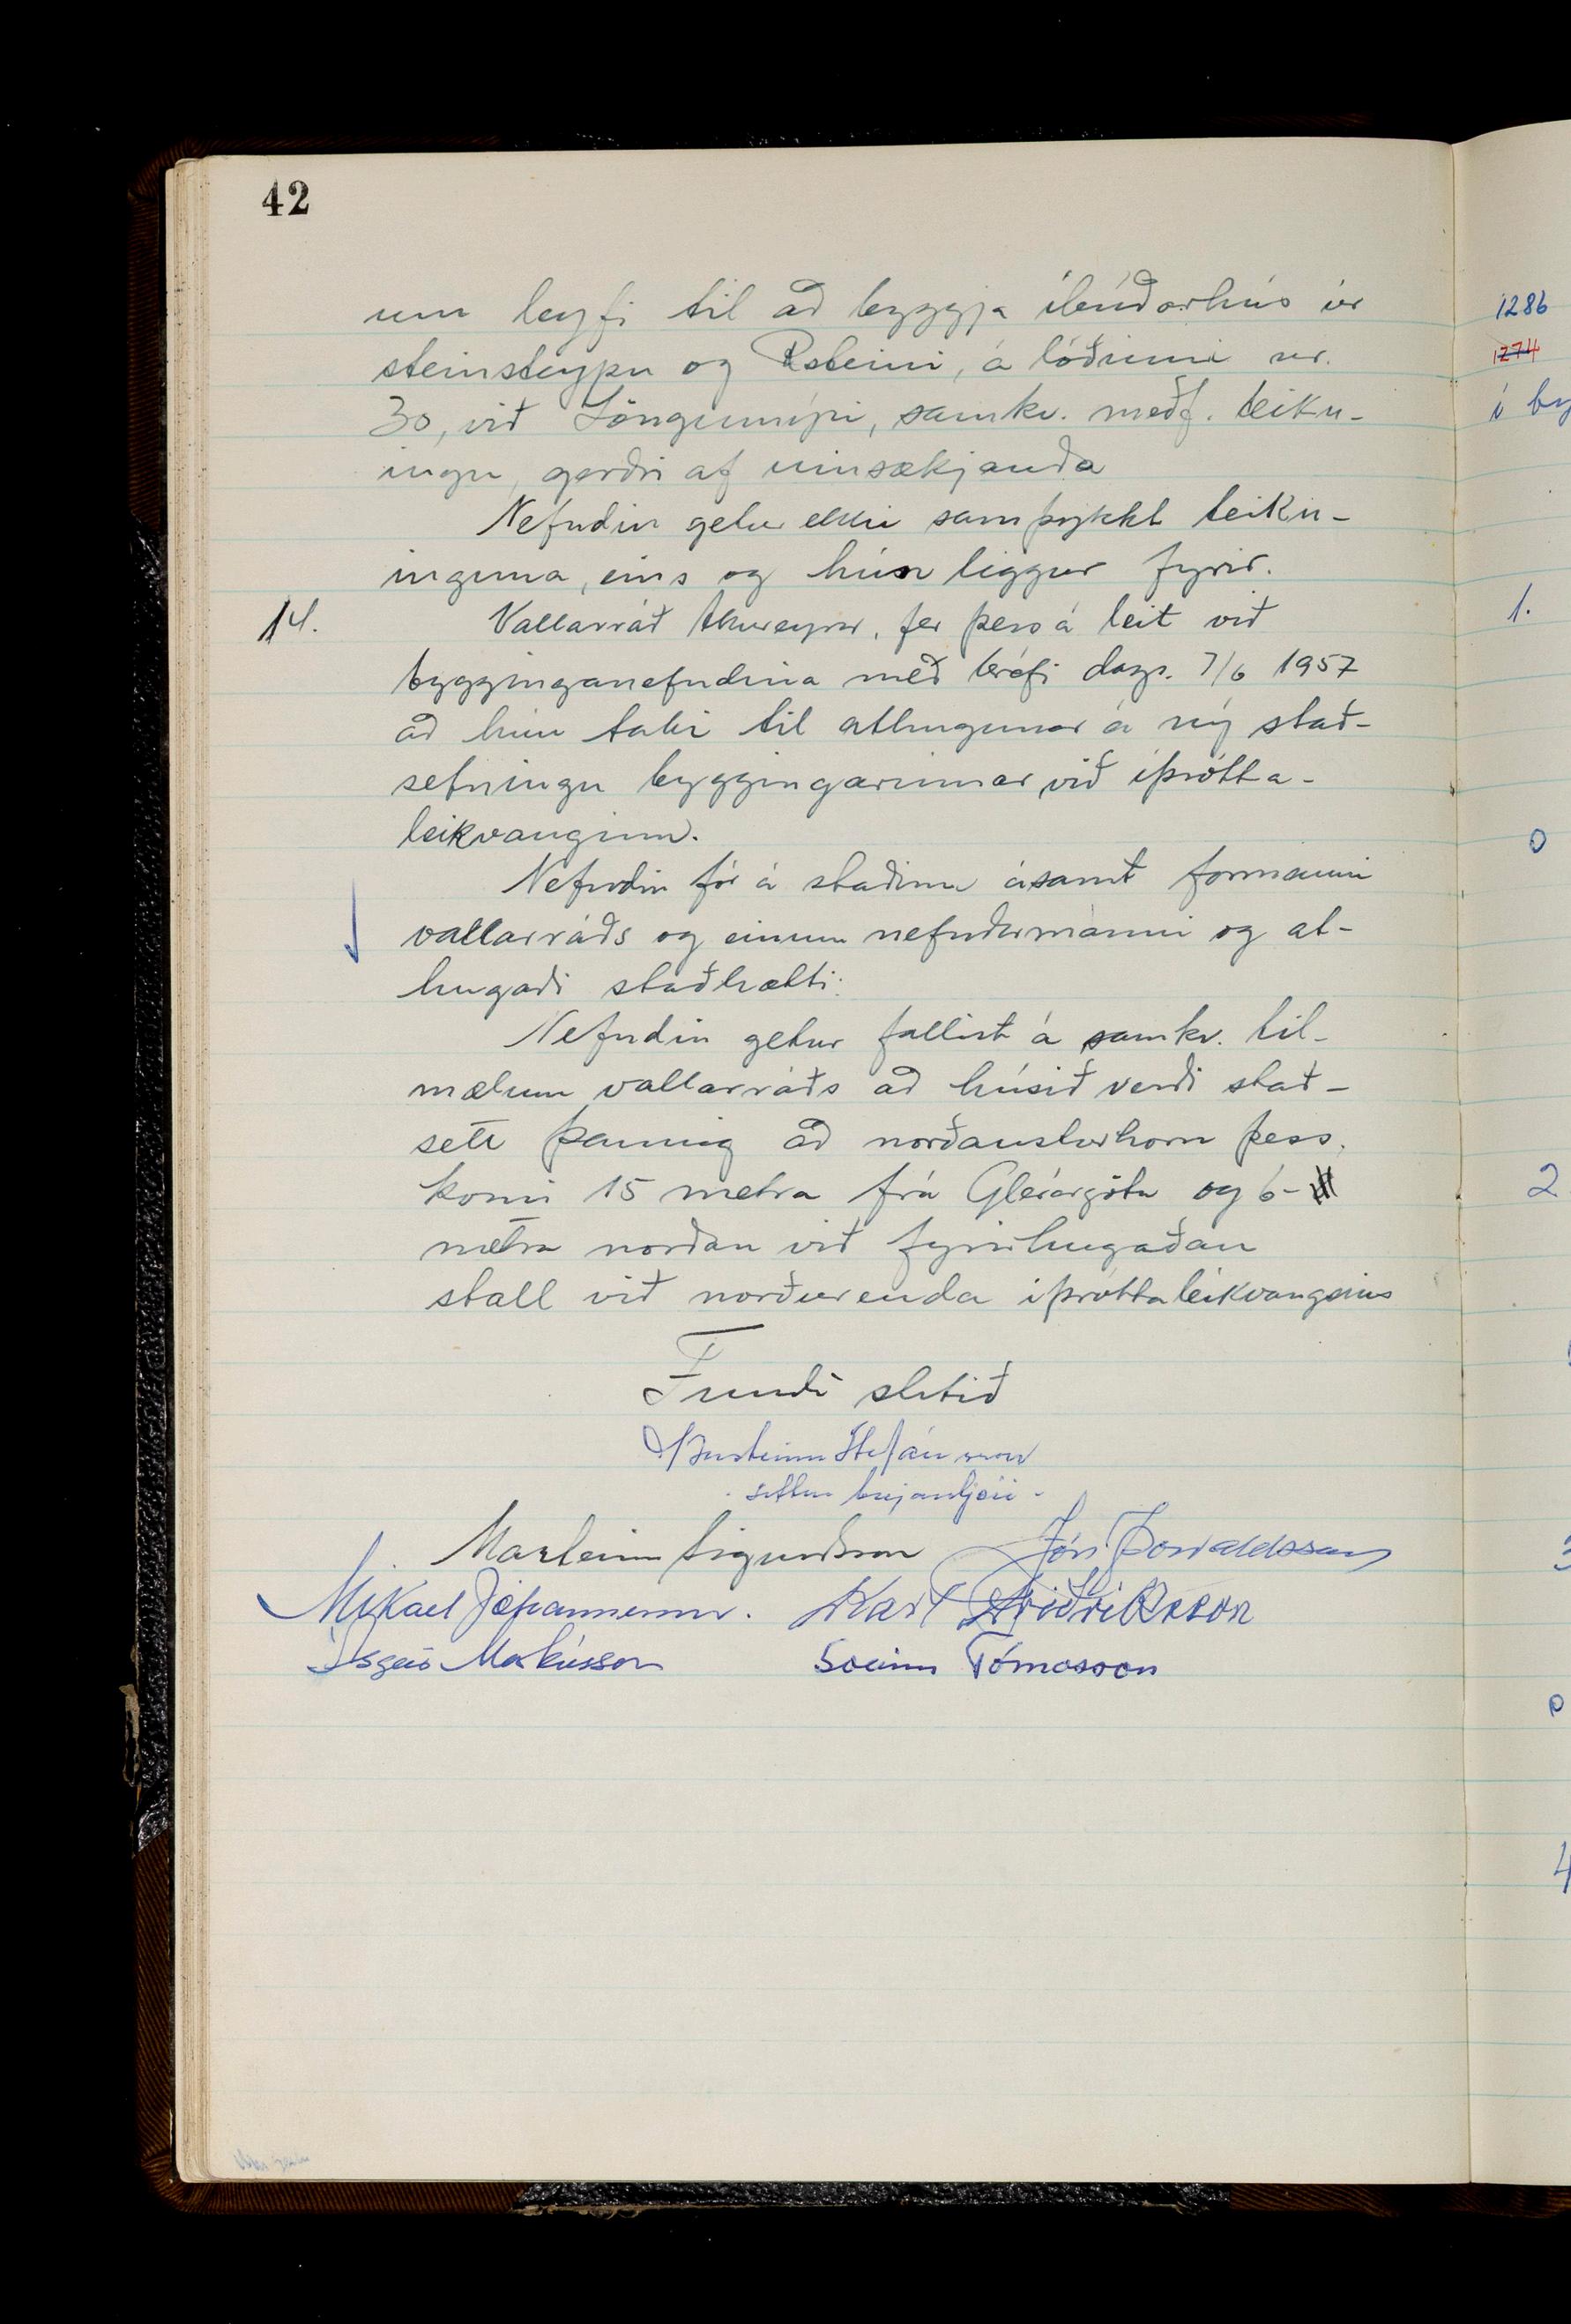 42
um leyfi til að byggja íbúðarhús úr
steinsteypu og Rsteini, á lóðinni nr.
30, við Löngumýri, samkv. meðf. teikn-
ingu, gerðri af umsækjanda
Nefndin getur ekki samþykkt teikn-
inguna, eins og hún liggur fyrir.
14. Vallarráð Akureyrar, fer þess á leit við
bygginganefndina með bréfi dags. 7/6 1957
að hún taki til athugunar á ný stað-
setningu byggingarinnar við íþrótta-
leikvanginn.
Nefndin fór á staðinn ásamt formanni
vallarráðs og einum nefndarmanni og at-
hugaði staðhætti.
Nefndin getur fallist á samkv. til-
mælum vallarráðs að húsið verði stað-
sett þannig að norðausturhorn þess
komi 15 metra frá Glerárgötu og 6-
metra norðan við fyrirhugaðan
stall við norðurenda íþróttaleikvangsins
Fundi slitið
Stefánsson
settur bæjarstjóri -
Marteinn Sigurðsson Jón Þorvaldsson
Mikael Jóhannesson. Karl Friðriksson
Ásgeir Markússon Sveinn Tómasson
1286
1274
í by
1.
0
2
3
0
4